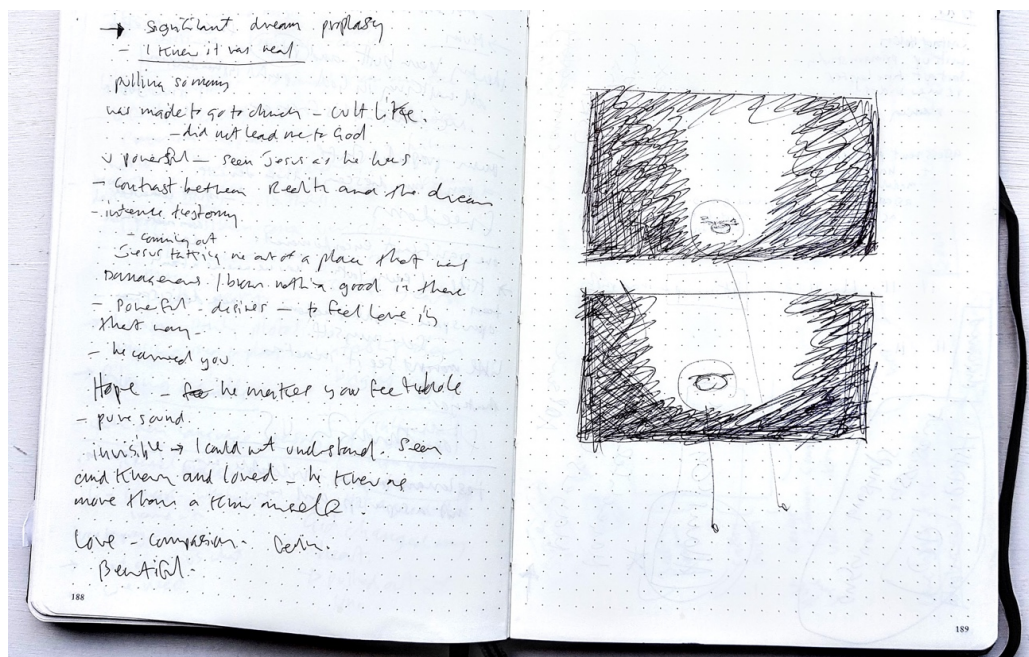 → Significant dream prophasy
- I knew it was real
pulling so many
was made to go to church - cult like.
- did not lead me to God
v powerful - seen Jesus as he was
- contrast between Reality and the dream
- intense testomy
- coming out
Jesus talking me out of a place that was
Damagenous. I know nothing good in there
- Powerful - desires - to feel love in
that way -
- he carried you.
Hope - he makes you feel whole
- pure sound.
invisible → I could not understand. Seen
and known and loved - he knew me
more than a knew myself
Love - compassion.
Beautiful.
188
189